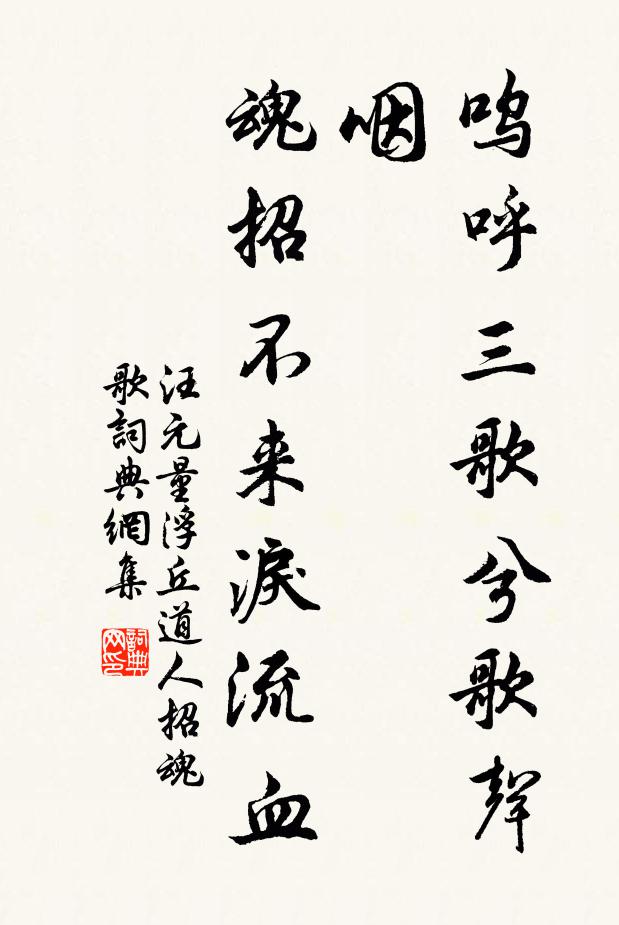 嗚呼三歌兮歌聲
咽
魂招不来淚流血
汪元量浮丘道人招魂
歌詞典網集
詞典
网印